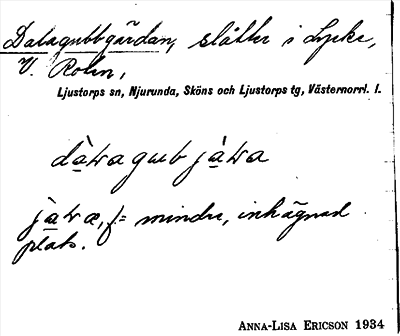 Dalagubbgärdan, slåtter i Lycke,
V. Rolin,
Ljustorps sn, Njurunda, Sköns och Ljustorps tg, Västernorrl. l.
jàwa, f = mindre, inhägnad
plats.
ANNA-LISA ERICSON 1934